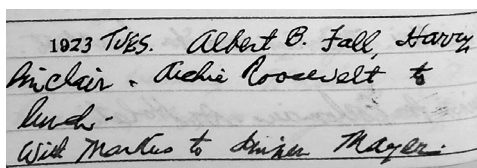 1923 TUES. Albert B. Fall, Harry
Sinclair. Archie Roosevelt to
lunch.
With Markus to dinner Mayer.